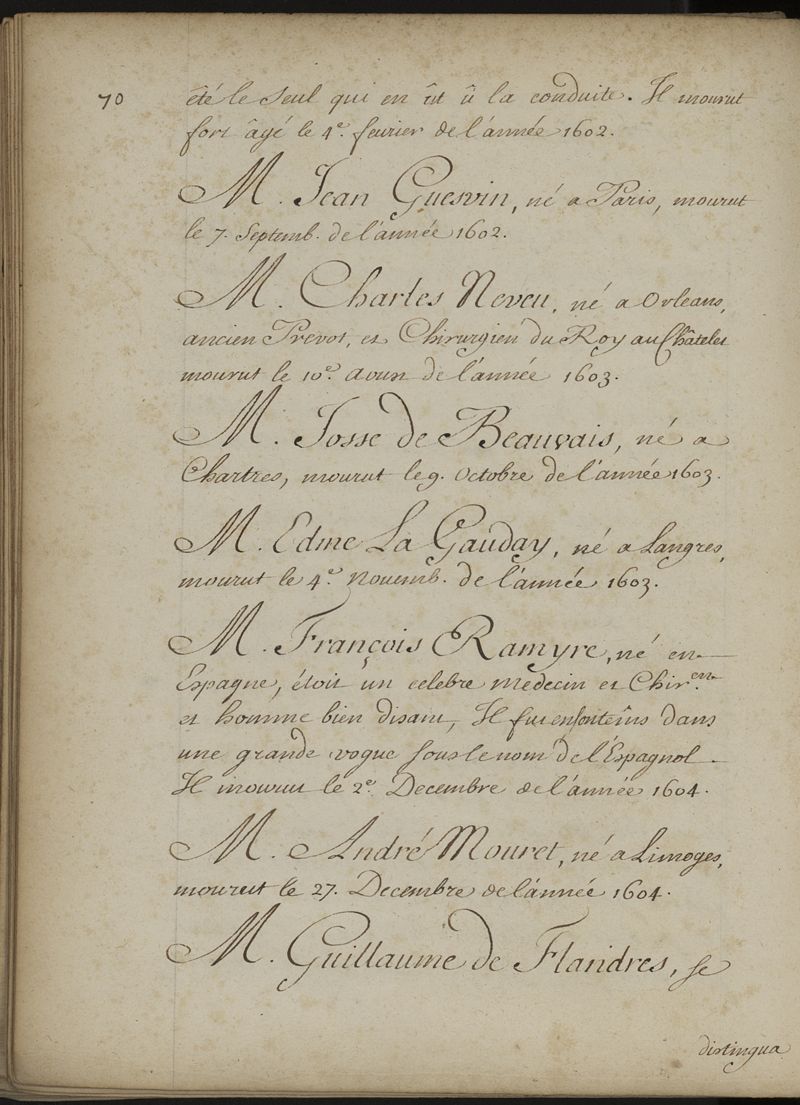 70
été le seul qui en ût û la conduite. Il mourut
fort âgé le 4e. fevrier de l'année 1602.
M. Jean Guesvin, né a Paris, mourut
le 7. Septemb. de l'année 1602.
M. Charles Neveu, né a Orleans,
ancien Prevot, et Chirurgien du Roy au Châtelet
mourut le 10e. Aoust de l'année 1603.
M. Josse de Beauvais, né a
Chartres, mourut le 9. Octobre de l'année 1603.
M. Edme La Gauday, né a Langres,
mourut le 4e. Novemb. de l'année 1603.
M. François Ramyre, né en
Espagne, étoit un celebre medecin et Chir.en
et homme bien disant, Il fut en son tems dans
une grande vogue sous le nom de l'Espagnol.
Il mourut le 2e. Decembre de l'année 1604.
M. André Mouret, né a Limoges,
mourut le 27. Decembre de l'année 1604.
M. Guillaume de Flandres, se
distingua